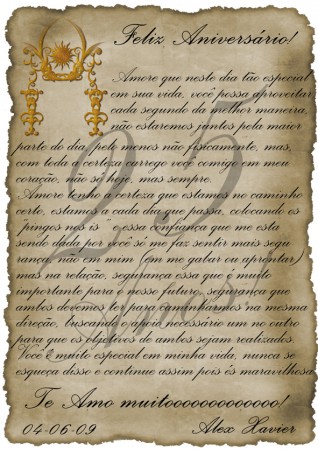 Feliz Aniversário!
Amore que neste dia tão especial
em sua vida, você possa aproveitar
cada segundo da melhor maneira,
não estaremos juntos pela maior
parte do dia, pelo menos não fisicamente, mas,
com toda a certeza carrego você comigo em meu
coração, não só hoje, mas sempre.
Amore tenho a certeza que estamos no caminho
certo, estamos a cada dia que passa, colocando os
"pingos nos is" essa confiança que me esta
sendo dada por você só me faz sentir mais segu
rança, não em mim (em me gabar ou aprontar)
mas na relação, segurança essa que é muito
importante para o nosso futuro, segurança que
ambos devemos ter para caminharmos na mesma
direção, buscando o apoio necessário um no outro
para que os objetivos de ambos sejam realizados.
Você é muito especial em minha vida, nunca se
esqueça disso e continue assim pois és maravilhosa
Te Amo muitoooooooooooo!
04-06-09 Alex Xavier